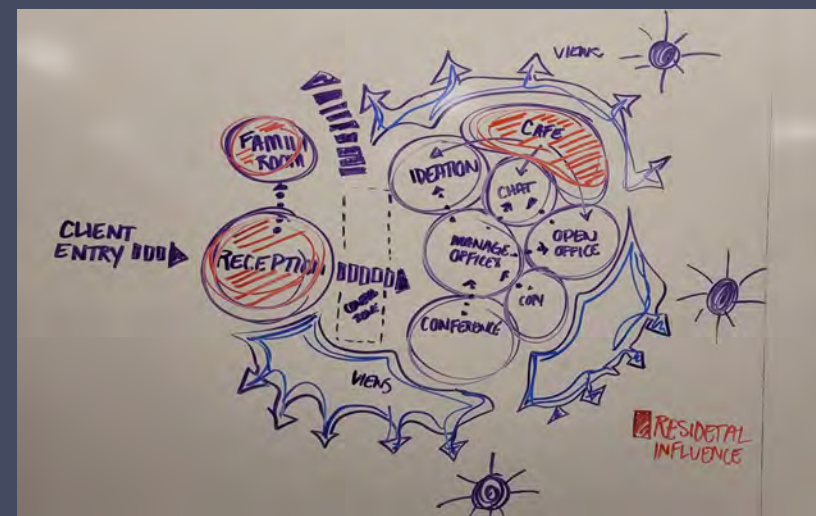 VIEWS
CAFE
FAMILY
ROOM
IDEATION
CHAT
CLIENT
ENTRY
RECEPTION
MANAGE
OFFICES
OPEN
OFFICE
COPY
CONFERENCE
VIEWS
RESIDETAL
INFLUENCE